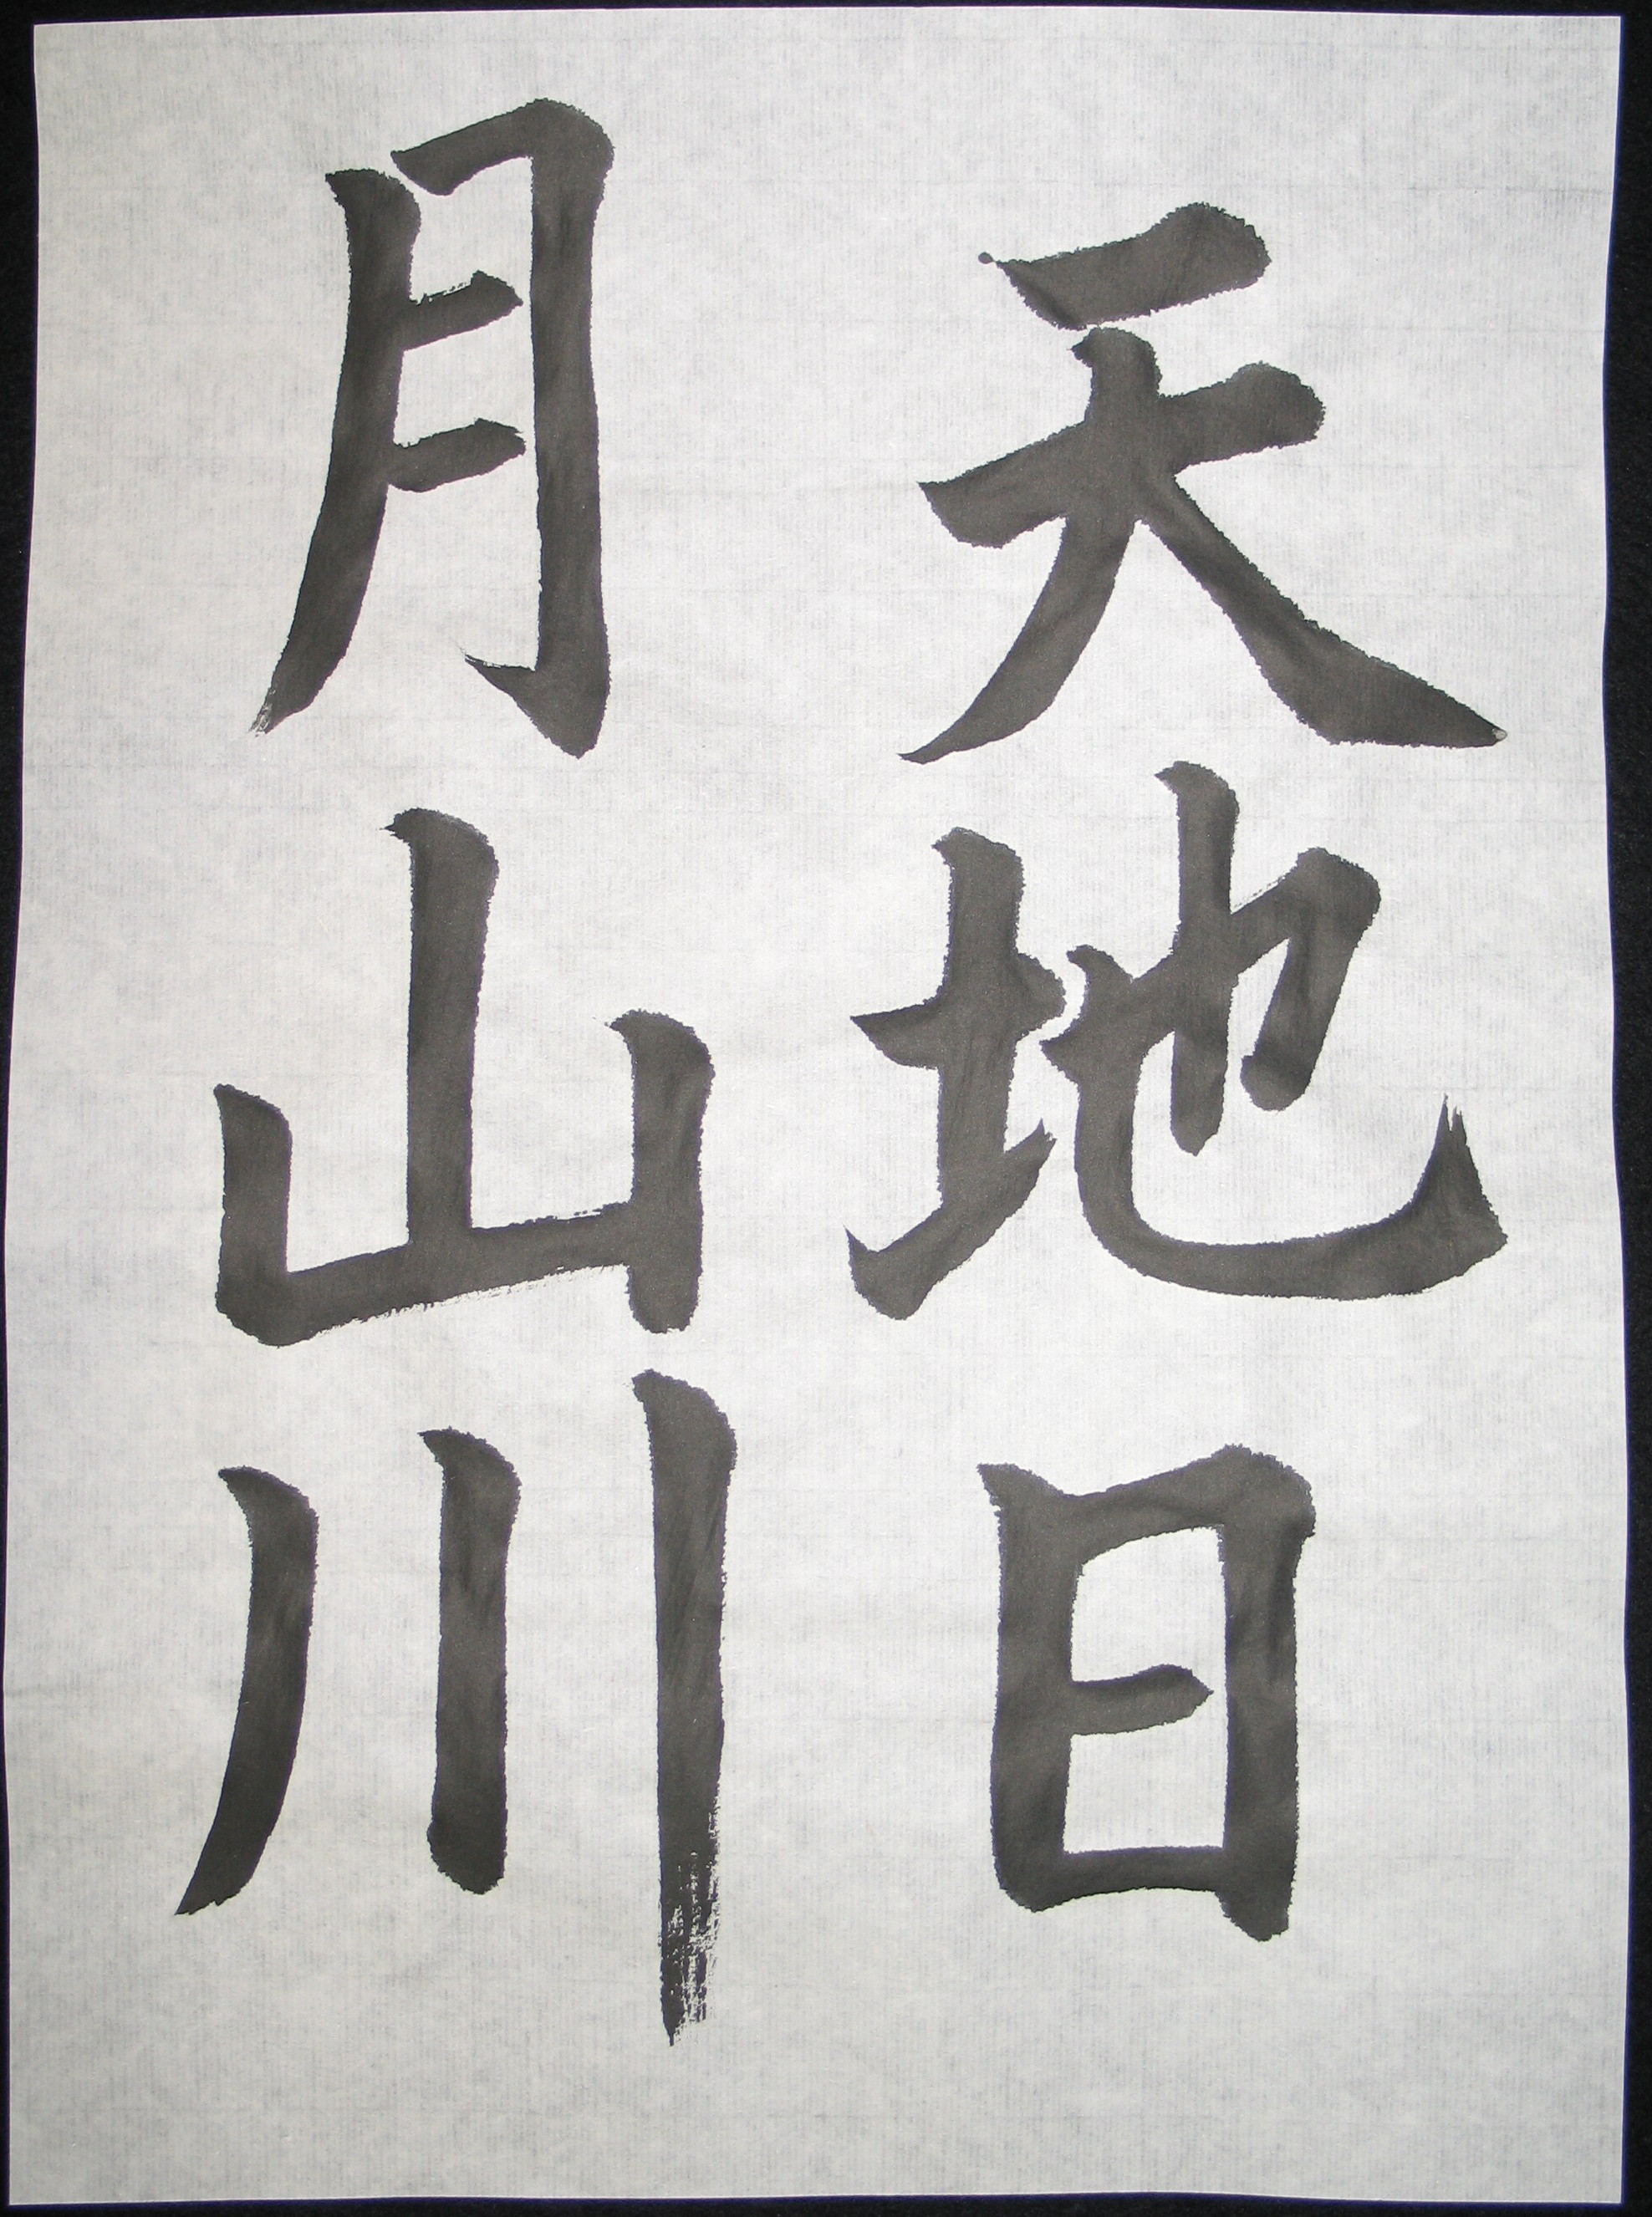 天地日
月山川